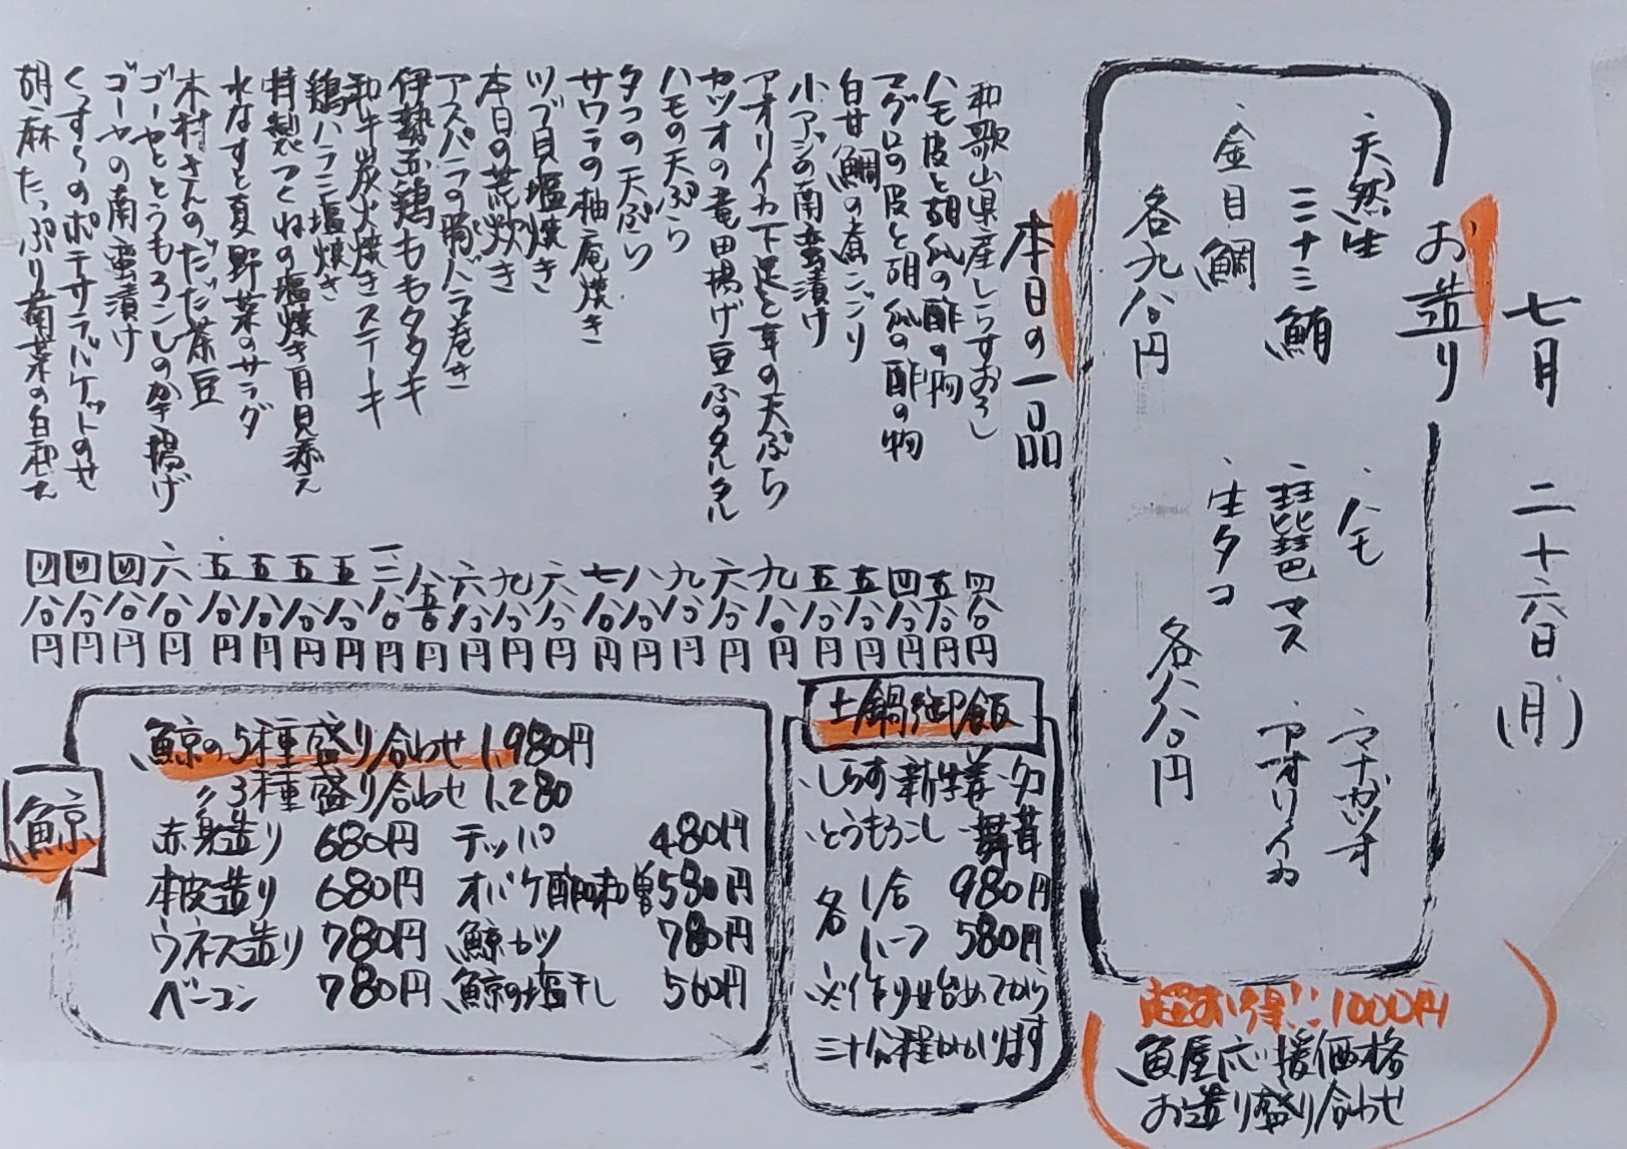 七月二十六日(月)
お造り
・天然生
ミナミ鮪
・金目鯛
各九八〇円
・ハモ
・琵琶マス
・生タコ
・マナガツオ
・アオリイカ
各八八〇円
超お得!!1000円
魚屋応援価格
お造り盛り合わせ
本日の一品
和歌山県産しらすおろし 四八〇円
ハモ皮と胡瓜の酢の物 五八〇円
マグロの皮と胡瓜の酢の物 四八〇円
白甘鯛の煮こごり 五八〇円
小アジの南蛮漬け 五八〇円
アオリイカ下足と茸の天ぷら 九八〇円
カツオの竜田揚げ豆ふのタルタル 六八〇円
ハモの天ぷら 九八〇円
タコの天ぷら 八八〇円
サワラの柚庵焼き 七八〇円
ツブ貝塩焼き 六八〇円
本日の荒炊き 九八〇円
アスパラの豚バラ巻き 六八〇円
伊勢赤鶏ももタタキ 八五〇円
和牛炭火焼きステーキ 一二八〇円
鶏ハラミ塩焼き 五八〇円
特製つくねの塩焼き月見添え 五八〇円
水なすと夏野菜のサラダ 五八〇円
木村さんのだだ茶豆 五八〇円
ゴーヤととうもろこしのかき揚げ 六八〇円
ゴーヤの南蛮漬け 四八〇円
ポテサラバケットのせ 四八〇円
胡麻たっぷり 菜の白和え 四八〇円
土鍋御飯
・しらす ・新生姜 ・タコ
・とうもろこし ・舞茸
各 1合 980円
ハーフ 580円
※作り始めてから
三十分程かかります
鯨
鯨の5種盛り合わせ 1,980円
〃3種盛り合わせ 1,280
赤身造り 680円 テッパ 480円
本皮造り 680円 オバケ酢味噌 580円
ウネス造り 780円 鯨カツ 780円
ベーコン 780円 鯨の塩干し 560円